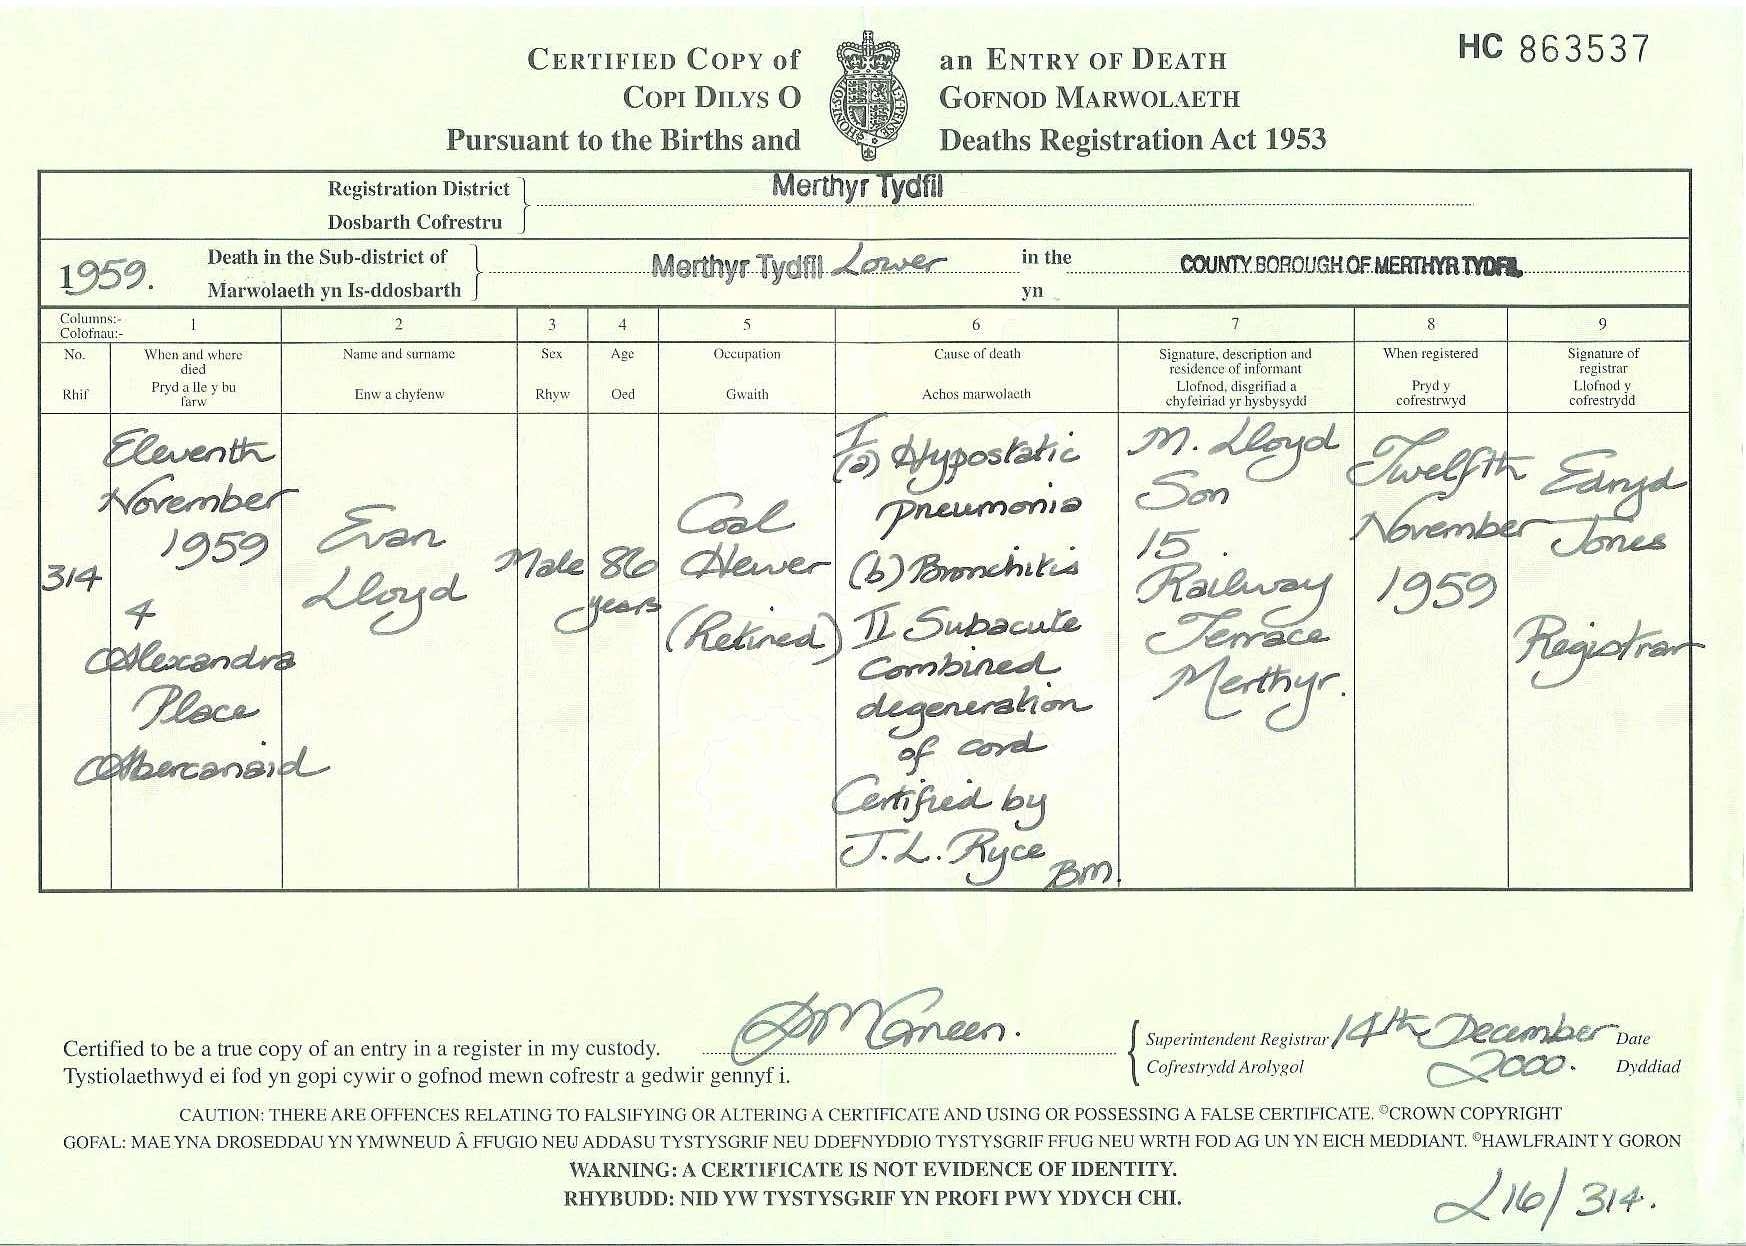 HC 863537
CERTIFIED COPY of an ENTRY OF DEATH
COPI DILYS O GOFNOD MARWOLAETH
Pursuant to the Births and Deaths Registration Act 1953
HONI·SOIT
AL·Y·PENSE
Registration District Merthyr Tydfil
Dosbarth Cofrestru
1959. Death in the Sub-district of Merthyr Tydfil Lower in the COUNTY BOROUGH OF MERTHYR TYDFIL
Marwolaeth yn Is-ddosbarth yn
Columns:- 1 2 3 4 5 6 7 8 9
Colofnau:-
No.
Rhif
When and where
died
Pryd a lle y bu
farw
Name and surname
Enw a chyfenw
Sex
Rhyw
Age
Oed
Occupation
Gwaith
Cause of death
Achos marwolaeth
Signature, description and
residence of informant
Llofnod, disgrifiad a
chyfeiriad yr hysbysydd
When registered
Pryd y
cofrestrwyd
Signature of
registrar
Llofnod y
cofrestrydd
314
Eleventh
November
1959
4
Alexandra
Place
Abercanaid
Evan
Lloyd
Male
86
years
Coal
Hewer
(Retired)
I
(a) Hypostatic
pneumonia
(b) Bronchitis
II Subacute
combined
degeneration
of cord
Certified by
J. L. Ryce
BM.
M. Lloyd
Son
15
Railway
Terrace
Merthyr.
Twelfth
November
1959
Ednyd
Jones
Registrar
Certified to be a true copy of an entry in a register in my custody. Superintendent Registrar 14th December Date
Tystiolaethwyd ei fod yn gopi cywir o gofnod mewn cofrestr a gedwir gennyf i. Cofrestrydd Arolygol 2000. Dyddiad
CAUTION: THERE ARE OFFENCES RELATING TO FALSIFYING OR ALTERING A CERTIFICATE AND USING OR POSSESSING A FALSE CERTIFICATE. ©CROWN COPYRIGHT
GOFAL: MAE YNA DROSEDDAU YN YMWNEUD Â FFUGIO NEU ADDASU TYSTYSGRIF NEU DDEFNYDDIO TYSTYSGRIF FFUG NEU WRTH FOD AG UN YN EICH MEDDIANT. ©HAWLFRAINT Y GORON
WARNING: A CERTIFICATE IS NOT EVIDENCE OF IDENTITY.
RHYBUDD: NID YW TYSTYSGRIF YN PROFI PWY YDYCH CHI.
L16/314.